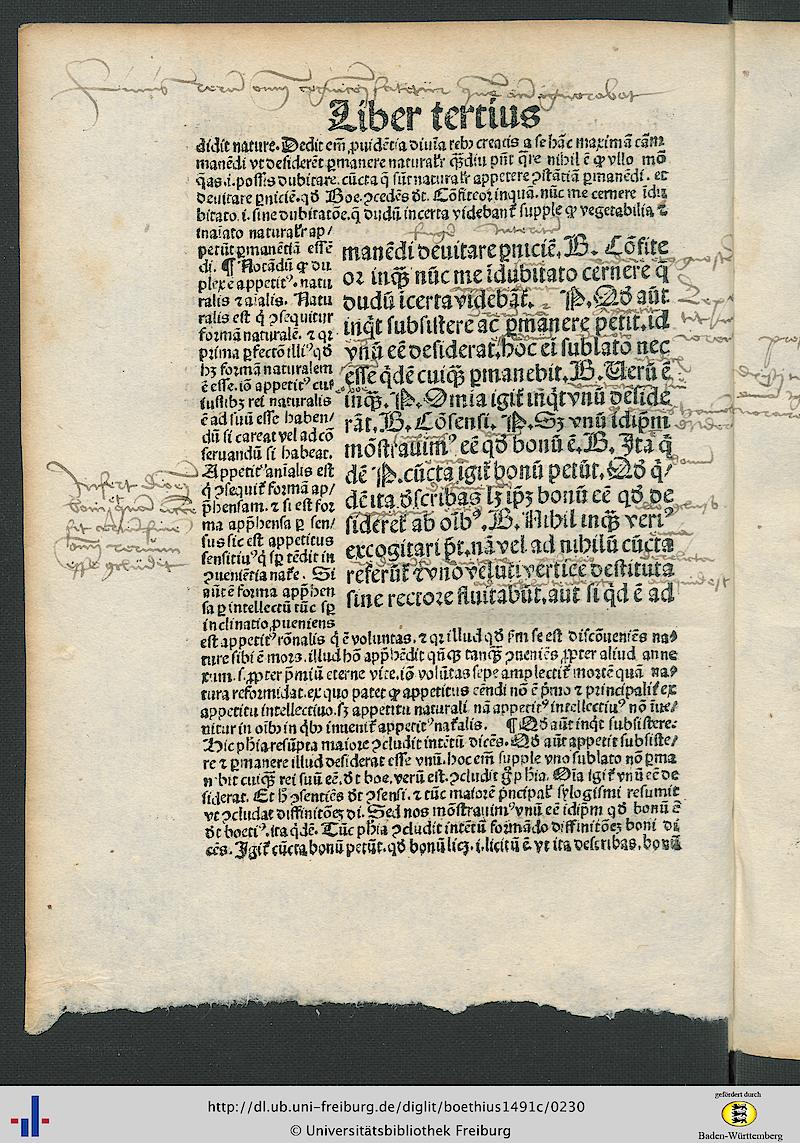 Liber tertius
didit nature. Dedit em̄ ꝓuidētia diuīa rebꝰ creatis a se hāc maximā cām
manēdi vt desiderēt ꝑmanere naturalr̄ q̄ꝫdiu pn̄t q̄re nihil ē ꝙ vllo mō
q̄as .i. possis dubitare. cūcta q̄ sūt naturalr̄ appetere ꝯstātiā ꝑmanēdi. et
deuitare ꝑniciē. qd̄ Boe. ꝯcedēs dt̄. Cōfiteor inquā. nūc me cernere īdu
bitato .i. sine dubitatōe. q̄ dudū incerta videbant̄ supple ꝙ vegetabilia ⁊
inaīato naturalr̄ ap/
petūt ꝑmanētiā essē
di. ¶ Notādū ꝙ du
plex ē appetitꝰ. natu
ralis ⁊ aīalis. Natu
ralis est q̇ ꝯsequitur
formā naturalē. ⁊ qr
prima ꝑfectō illiꝰ qd̄
hꝫ formā naturalem
ē esse. iō appetitꝰ cui
iuslibꝫ rei naturalis
ē ad suū esse haben/
dū si careat vel ad cō
seruandū si habeat.
Appetitꝰ aīalis est
q̇ ꝯsequit̄ formā ap/
p̄hensam. ⁊ si est for
ma app̄hensa ꝑ sen/
sus sic est appetitus
sensitiuꝰ q̇ sꝑ tēdit in
ꝯueniētia nat̄e. Si
aūt ē forma app̄hen
sa ꝑ intellectū tūc sꝑ
inclinatio ꝓueniens
manēdi deuitare ꝑniciē. B. Cōfite
or inqꝫ nūc me īdubitato cernere q̄
dudū īcerta videbāt̄. P. Qd̄ aūt
inq̇t subsistere ac ꝑmanere petit. id
vnū eē desiderat. hoc ei sublato nec
esse q̇dē cuiqꝫ ꝑmanebit. B. Uerū ē
inqꝫ. P. Omīa igit̄ inq̇t vnū deside
rāt. B. Cōsensi. P. Sꝫ vnū īdip̄m
mōstrauimꝰ eē qd̄ bonū ē. B. Ita q̇
dē P. cūcta igit̄ bonū petūt. Qd̄ q̇/
dē ita dscribas lꝫ ip̄ꝫ bonū eē qd̄ de
sideret̄ ab oībꝰ. B. Nihil inqꝫ veriꝰ
excogitari pt̄. nā vel ad nihilū cūcta
referūt̄ ⁊ vno veluti vertice destituta
sine rectore fluitabūt. aut si q̇d ē ad
est appetitꝰ rōnalis q̇ ē voluntas. ⁊ qr illud qd̄ ꝑm se est discōueniēs na/
ture sibi ē mors. illud hō app̄hēdit qn̄qꝫ tanqꝫ ꝯueniēs ꝓpter aliud anne
xum. s. ꝓpter p̄miū eterne vite. iō volūtas sepe amplectit̄ mortē quā na/
tura reformidat. ex quo patet ꝙ appetitus eēndi nō ē p̄mo ⁊ principalit̄ ex
appetitu intellectiuo. sꝫ appetitu naturali nā appetitꝰ intellectiuꝰ nō īue/
nitur in oībꝰ in q̇bꝰ inuenit̄ appetitꝰ nat̄alis. ¶ Qd̄ aūt inq̇t subsistere.
Hic ph̄ia resūpta maiore ꝯcludit intētū dicēs. Qd̄ aūt appetit subsiste/
re ⁊ ꝑmanere illud desiderat esse vnū. hoc em̄ supple vno sublato nō ꝑma
nebit cuiqꝫ rei suū eē. dt̄ boe. verū est. ꝯcludit gͦ ph̄ia. Oīa igit̄ vnū eē de
siderat. Et hͦ ꝯsentiēs dt̄ ꝯsensi. ⁊ tūc maiorē p̄ncipal̄ sylogismi resumit
vt ꝯcludat diffinitōeꝫ di. Sed nos mōstrauimꝰ vnū eē idip̄m qd̄ bonū ē
dt̄ boetiꝰ. ita q̇dē. Tūc ph̄ia ꝯcludit intētū formādo diffinitōeꝫ boni di
cēs. Igit̄ cūcta bonū petūt. qd̄ bonū licꝫ .i. licitū ē. vt ita describas. bonū
http://dl.ub.uni-freiburg.de/diglit/boethius1491c/0230
© Universitätsbibliothek Freiburg
gefördert durch
Baden-Württemberg